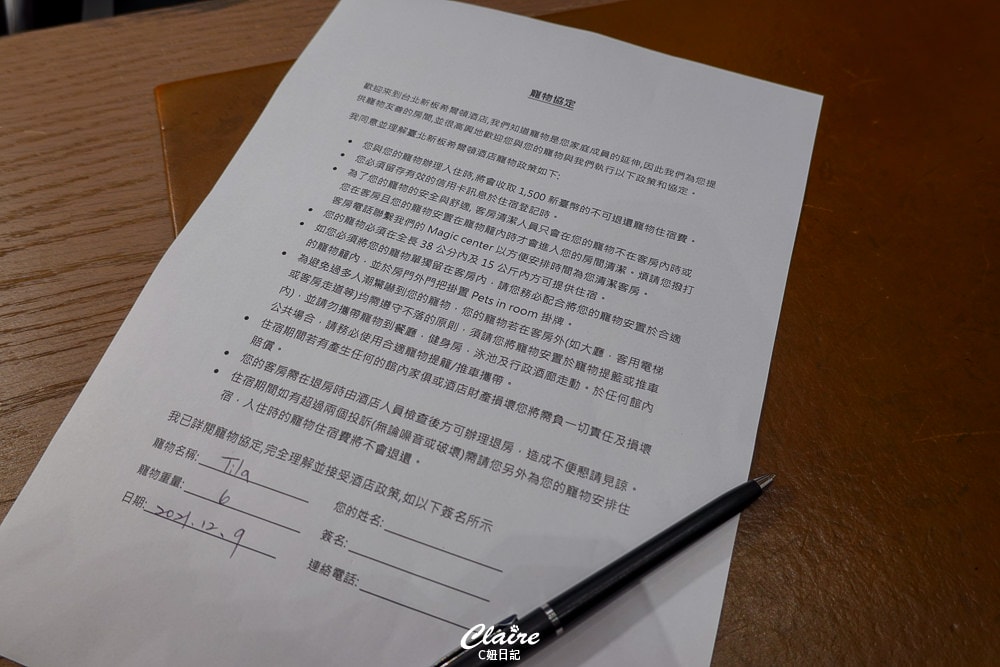 寵物協定
歡迎來到台北新板希爾頓酒店,我們知道寵物是您家庭成員的延伸,因此我們為您提
供寵物友善的房間,並很高興地歡迎您與您的寵物與我們執行以下政策和協定。
我同意並理解臺北新板希爾頓酒店寵物政策如下:
• 您與您的寵物辦理入住時,將會收取 1,500 新臺幣的不可退還寵物住宿費。
• 您必須留存有效的信用卡訊息於住宿登記時。
• 為了您的寵物的安全與舒適, 客房清潔人員只會在您的寵物不在客房內時或
您在客房且您的寵物安置在寵物籠內時才會進入您的房間清潔。煩請您撥打
客房電話聯繫我們的 Magic center 以方便安排時間為您清潔客房。
• 您的寵物必須在全長 38 公分內及 15 公斤內方可提供住宿。
• 如您必須將您的寵物單獨留在客房內，請您務必配合將您的寵物安置於合適
的寵物籠內，並於房門外門把掛置 Pets in room 掛牌。
• 為避免過多人潮驚嚇到您的寵物，您的寵物若在客房外(如大廳，客用電梯
或客房走道等)均需遵守不落的原則，須請您將寵物安置於寵物提籃或推車
內)，並請勿攜帶寵物到餐廳，健身房，泳池及行政酒廊走動。於任何館內
公共場合，請務必使用合適寵物提籠/推車攜帶。
• 住宿期間若有產生任何的館內家俱或酒店財產損壞您將需負一切責任及損壞
賠償。
• 您的客房需在退房時由酒店人員檢查後方可辦理退房，造成不便懇請見諒。
• 住宿期間如有超過兩個投訴(無論噪音或破壞)需請您另外為您的寵物安排住
宿，入住時的寵物住宿費將不會退還。
我已詳閱寵物協定,完全理解並接受酒店政策,如以下簽名所示
寵物名稱: Tila
您的姓名:
寵物重量: 6
簽名:
日期: 2021.12.9
連絡電話:
Claire
C妞日記